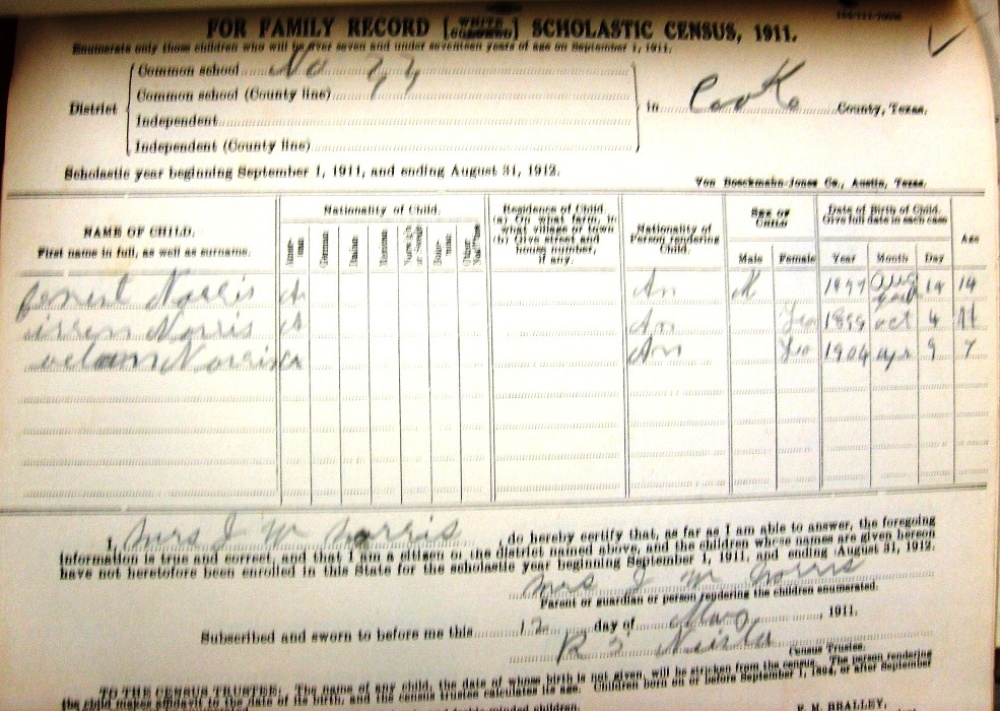 FOR FAMILY RECORD [WHITE COLORED] SCHOLASTIC CENSUS, 1911.
Enumerate only those children who will be over seven and under seventeen years of age on September 1, 1911.
District
Common school No 77
Common school (County line)
Independent
Independent (County line)
in Cooke County, Texas.
Scholastic year beginning September 1, 1911, and ending August 31, 1912.
Von Boeckmann-Jones Co., Austin, Texas.
NAME OF CHILD.
First name in full, as well as surname.
Nationality of Child.
American German Italian Mexican
Residence of Child.
(a) On what farm, in
what village or town
(b) Give street and
house number,
if any.
Nationality of
Person rendering
Child.
Sex of
Child
Male Female
Date of Birth of Child.
Give full date in each case
Year Month Day
Age
Norris A An M 1897 Aug 14 14
Norris A An Fe 1899 oct 4 11
Norris A An Fe 1904 apr 9 7
I, Mrs J W Norris, do hereby certify that, as far as I am able to answer, the foregoing
information is true and correct, and that I am a citizen of the district named above, and the children whose names are given hereon
have not heretofore been enrolled in this State for the scholastic year beginning September 1, 1911, and ending August 31, 1912.
Mrs J W Norris
Parent or guardian or person rendering the children enumerated.
Subscribed and sworn to before me this 12 day of May, 1911.
R S
Census Trustee.
TO THE CENSUS TRUSTEE: The name of any child, the date of whose birth is not given, will be stricken from the census. The person rendering
the child makes affidavit to the date of its birth, and the census trustee calculates its age. Children born on or before September 1, 1894, or after September
minded children.
F. M. BRALLEY,